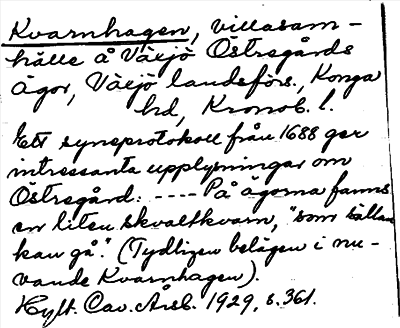 Kvarnhagen, villasam-
hälle å Växjö Östregårds
ägor, Växjö landsförs., Konga
hd, Kronob. l.
Ett syneprotokoll från 1688 ger
intressanta upplysningar om
Östregård: ---- På ägorna fanns
en liten skvaltkvarn, "som sällan
kan gå." (Tydligen belägen i nu-
vande Kvarnhagen).
Hylt. Cav. Årsb. 1929, s. 361.